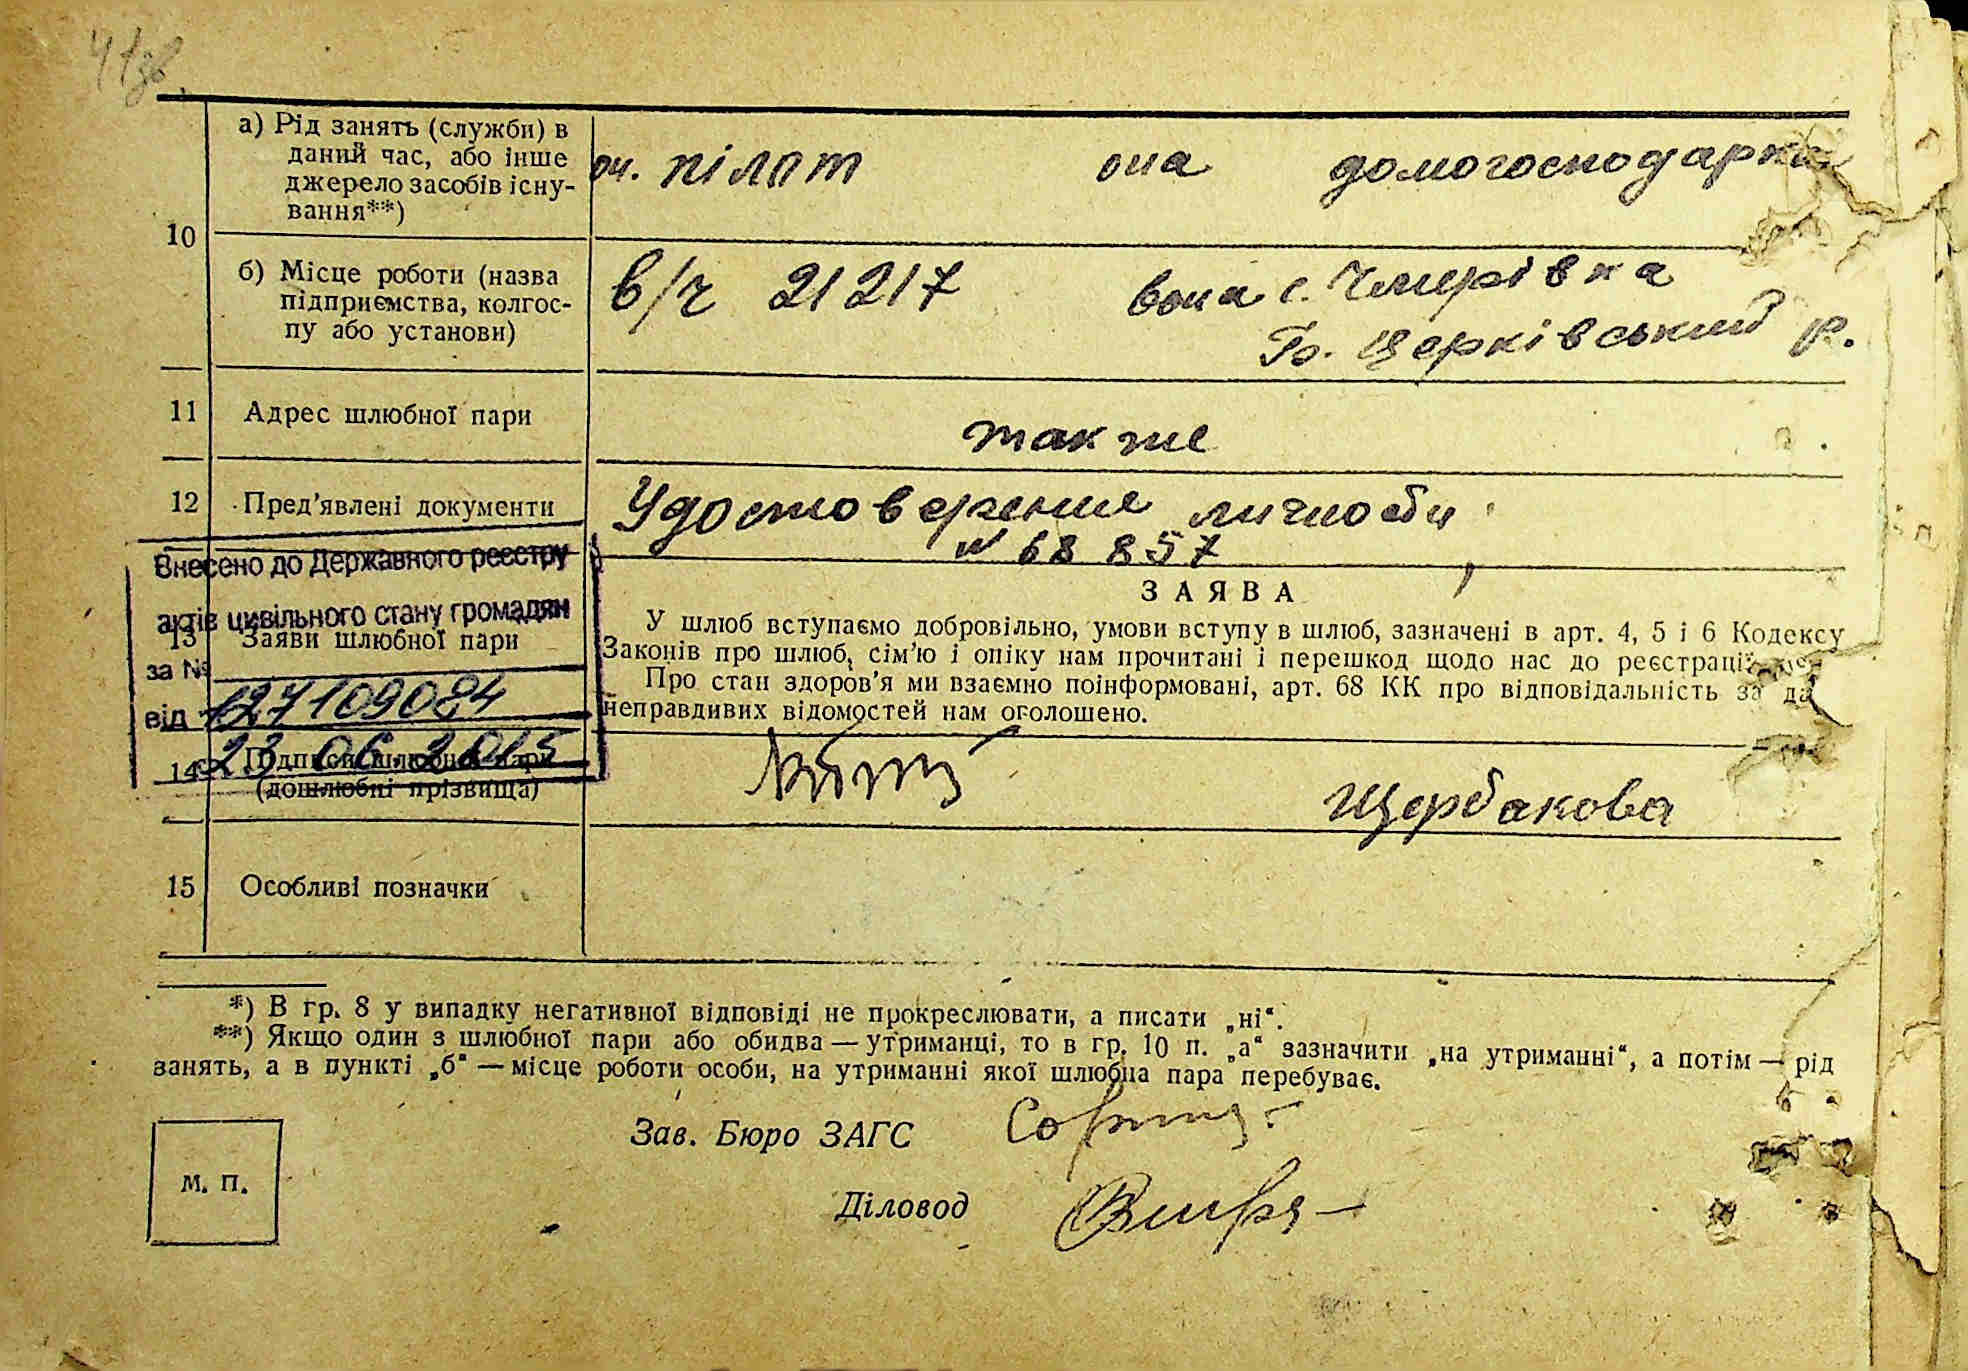 41зв
10
а) Рід занять (служби) в
даний час, або інше
джерело засобів існу-
вання**)
он. пілот она домогосподарка
б) Місце роботи (назва
підприємства, колгос-
пу або установи)
в/ч 21217 вона с. Чмирівка
Бо. Церківський р.
11 Адрес шлюбної пари
так же
12 Пред'явлені документи
Удостоверение личности
№ 68 857
Внесено до Державного реєстру
актів цивільного стану громадян
за №
127109084
від 23 06.2015
13 Заяви шлюбної пари
ЗАЯВА
У шлюб вступаємо добровільно, умови вступу в шлюб, зазначені в арт. 4, 5 і 6 Кодексу
Законів про шлюб, сім'ю і опіку нам прочитані і перешкод щодо нас до реєстрації
Про стан здоров'я ми взаємно поінформовані, арт. 68 КК про відповідальність за да
неправдивих відомостей нам оголошено.
14 Підписи шлюбної пари
(дошлюбні прізвища)
Щербакова
15 Особливі позначки
*) В гр. 8 у випадку негативної відповіді не прокреслювати, а писати „ні“.
**) Якщо один з шлюбної пари або обидва — утриманці, то в гр. 10 п. „а“ зазначити „на утриманні“, а потім — рід
занять, а в пункті „б“ — місце роботи особи, на утриманні якої шлюбна пара перебуває.
Зав. Бюро ЗАГС
Діловод
М. П.